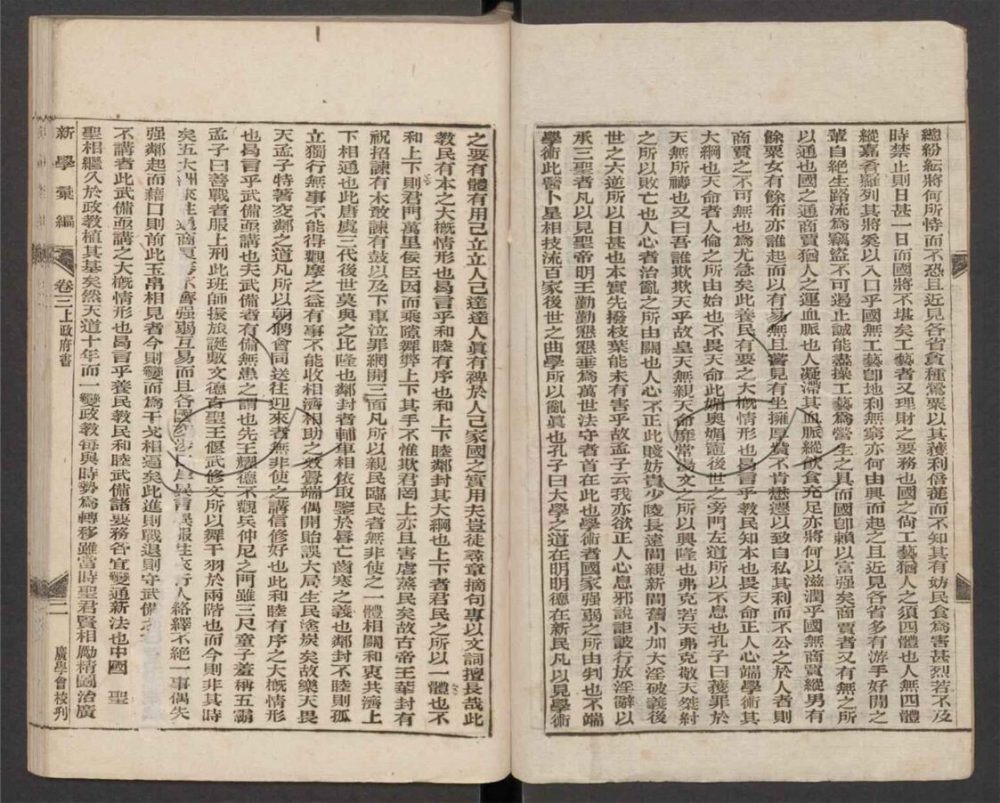 總紛紜將何所恃而不恐且近見各省貪種罌粟以其獲利倍蓰而不知其有妨民食為害甚烈若不及
時禁止則日甚一日而國將不堪矣工藝者又理財之要務也國之尚工藝猶人之須四體也人無四體
縱嘉肴羅列其將奚以入口乎國無工藝卽地利無窮亦何由興而起之且近見各省多有游手好閒之
輩自絕生路流為竊盜不可遏止誠能盡操工藝為營生之具而國卽賴以富强矣商賈者又有無之所
以通也國之通商賈猶人之運血脈也人凝滯其血脈縱飲食充足亦將何以滋潤乎國無商賈縱男有
餘粟女有餘布亦誰起而以有易無且嘗見有坐擁厚貲不肯懋遷以致自私其利而不公之於人者則
商賈之不可無也為尤急矣此養民有要之大槪情形也曷言乎教民知本也畏天命正人心端學術其
大綱也天命者人倫之所由始也不畏天命此媚奧媚竈後世之旁門左道所以不息也孔子曰獲罪於
天無所禱也又曰吾誰欺欺天乎故皇天無親天命靡常湯文之所以興隆也弗克若天弗克敬天桀紂
之所以敗亡也人心者治亂之所由關也人心不正此賤妨貴少陵長遠間親新間舊小加大淫破義後
世之六逆所以日甚也本實先撥枝葉能未有害乎故孟子云我亦欲正人心息邪說詎詖行放淫辭以
承三聖者凡以見聖帝明王勤勤懇懇垂為萬世法守者首在此也學術者國家强弱之所由判也不端
學術此醫卜星相技流百家後世之曲學所以亂眞也孔子曰大學之道在明明德在新民凡以見學術
之要有體有用己立立人己達達人眞有裨於人己家國之實用夫豈徒尋章摘句專以文詞擅長哉此
教民有本之大槪情形也曷言乎和睦有序也和上下睦鄰封其大綱也上下者君民之所以一體也不
和上下則君門萬里侯臣因而乘隙舞弊上下其手不惟欺君罔上亦且害虐蒸民矣故古帝王葦封有
祝招諫有木敢諫有鼓以及下車泣罪網開三面凡所以親民臨民者無非使之一體相關和衷共濟上
下相通也此唐虞三代後世莫與之比隆也鄰封者輔車相依取鑒於脣亡齒寒之義也鄰封不睦則孤
立獨行無事不能得觀摩之益有事不能收相濟相助之效釁端偶開貽誤大局生民塗炭矣故樂天畏
天孟子特著交鄰之道凡所以朝覲會同送往迎來者無非使之講信修好也此和睦有序之大槪情形
也曷言乎武備亟講也夫武備者有備無患之謂也先王耀德不觀兵仲尼之門雖三尺童子羞稱五霸
孟子曰善戰者服上刑此班師振旅誕敷文德古聖王偃武修文所以舞干羽於兩階也而今則非其時
矣五大洲來往通商強弱互易而且各國往來行人絡繹不絕一事偶失
强鄰起而藉口則前此玉帛相見者今則變而為干戈相逼矣此進則戰退則守武備
不講者此武備亟講之大槪情形也曷言乎養民教民和睦武備諸要務各宜變通新法也中國　聖
聖相繼久於政教植其基矣然天道十年而一變政教每與時勢為轉移雖當時聖君賢相勵精圖治廣
新學彙編
卷三上政府書
二
廣學會校刋